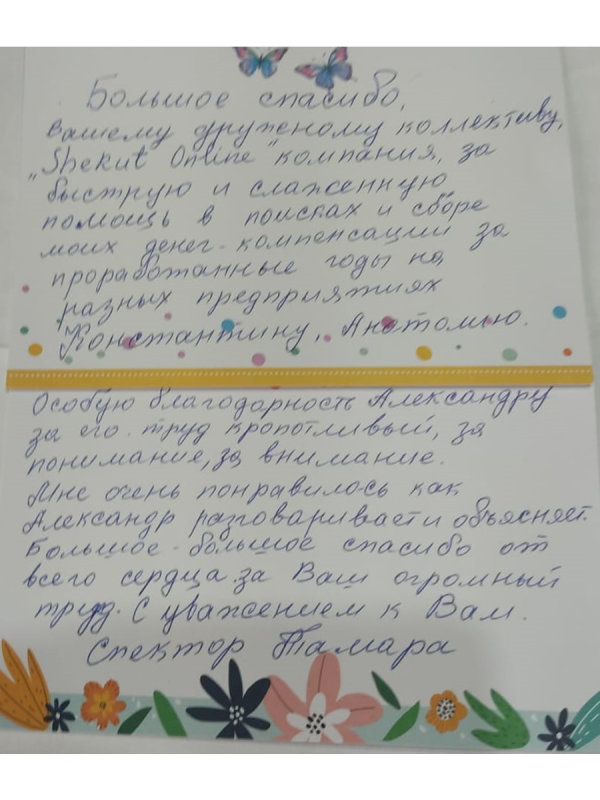 Большое спасибо,
вашему друженому коллективу,
„Shekut Online" компания, за
быструю и слаженную
помощь в поисках и сборе
моих денег-компенсации за
проработанные годы на
разных предприятиях
Константину, Анатолию.
Особую благодарность Александру
за его труд кропотливый, за
понимание, за внимание.
Мне очень понравилось как
Александр разговаривает и объясняет.
Большое-большое спасибо от
всего сердца за Ваш огромный
труд. С уважением к Вам.
Спектор Тамара